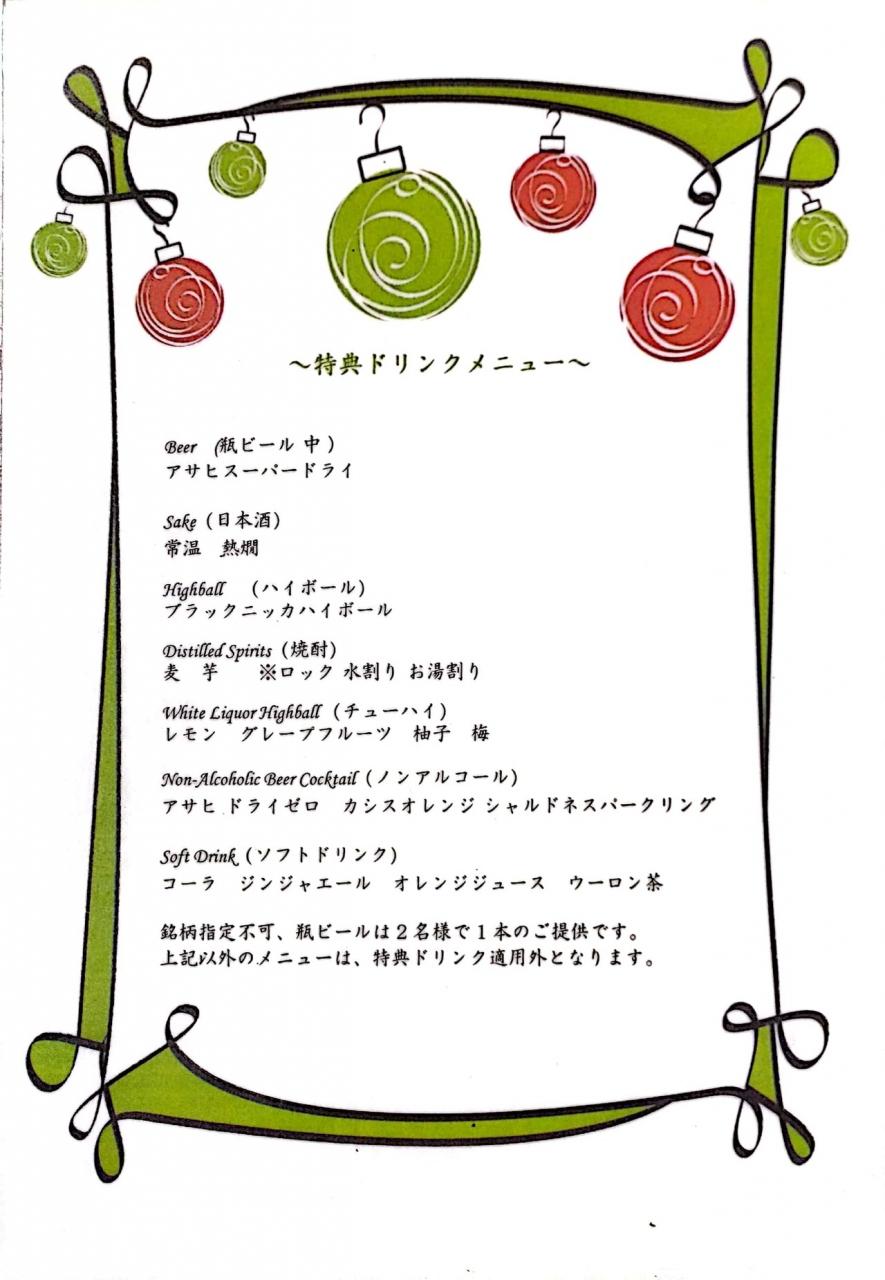 ～特典ドリンクメニュー～
Beer (瓶ビール 中)
アサヒスーパードライ
Sake (日本酒)
常温　熱燗
Highball (ハイボール)
ブラックニッカハイボール
Distilled Spirits (焼酎)
麦　芋　※ロック 水割り お湯割り
White Liquor Highball (チューハイ)
レモン　グレープフルーツ　柚子　梅
Non-Alcoholic Beer Cocktail (ノンアルコール)
アサヒ ドライゼロ　カシスオレンジ シャルドネスパークリング
Soft Drink (ソフトドリンク)
コーラ　ジンジャエール　オレンジジュース　ウーロン茶
銘柄指定不可、瓶ビールは２名様で１本のご提供です。
上記以外のメニューは、特典ドリンク適用外となります。